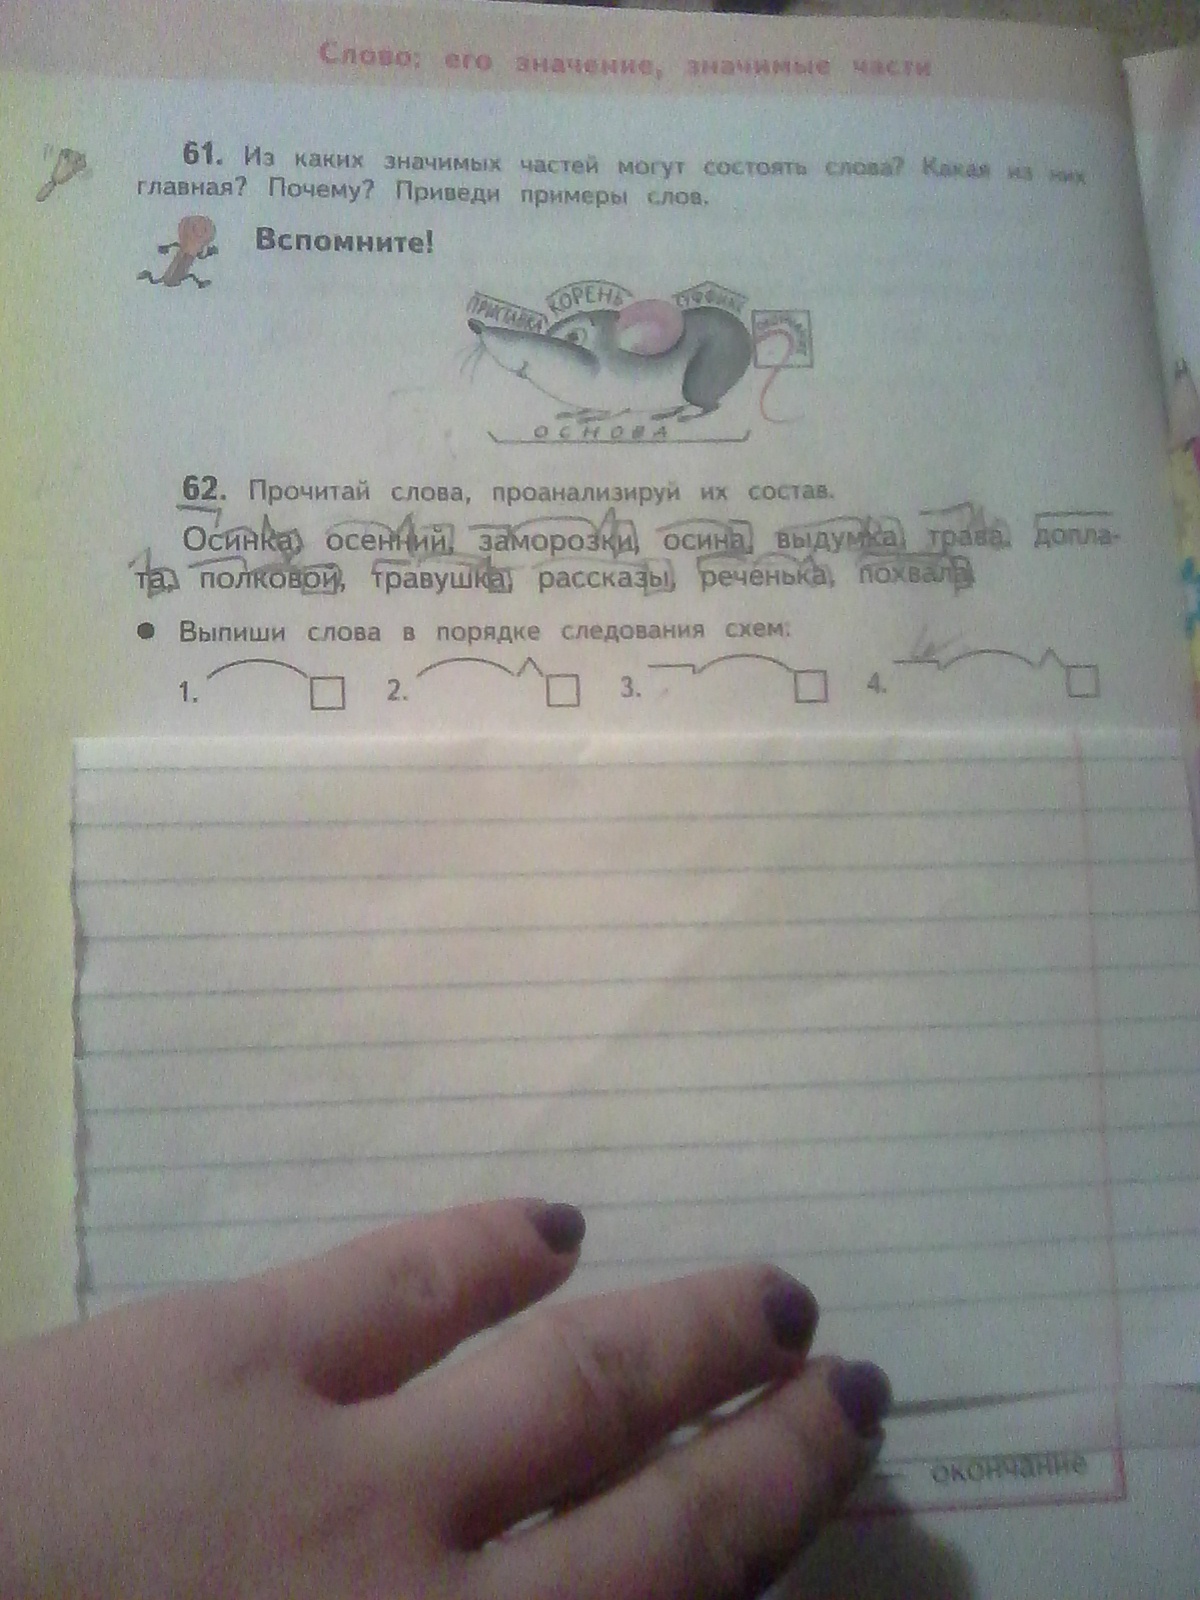 Слово: его значение, значимые части
61. Из каких значимых частей могут состоять слова? Какая из них
главная? Почему? Приведи примеры слов.
Вспомните!
ПРИСТАВКА КОРЕНЬ СУФФИКС ОКОНЧАНИЕ
ОСНОВА
62. Прочитай слова, проанализируй их состав.
Осинка, осенний, заморозки, осина, выдумка, трава, допла-
та, полковой, травушка, рассказы, реченька, похвала.
● Выпиши слова в порядке следования схем:
1. 2. 3. 4.
— окончание